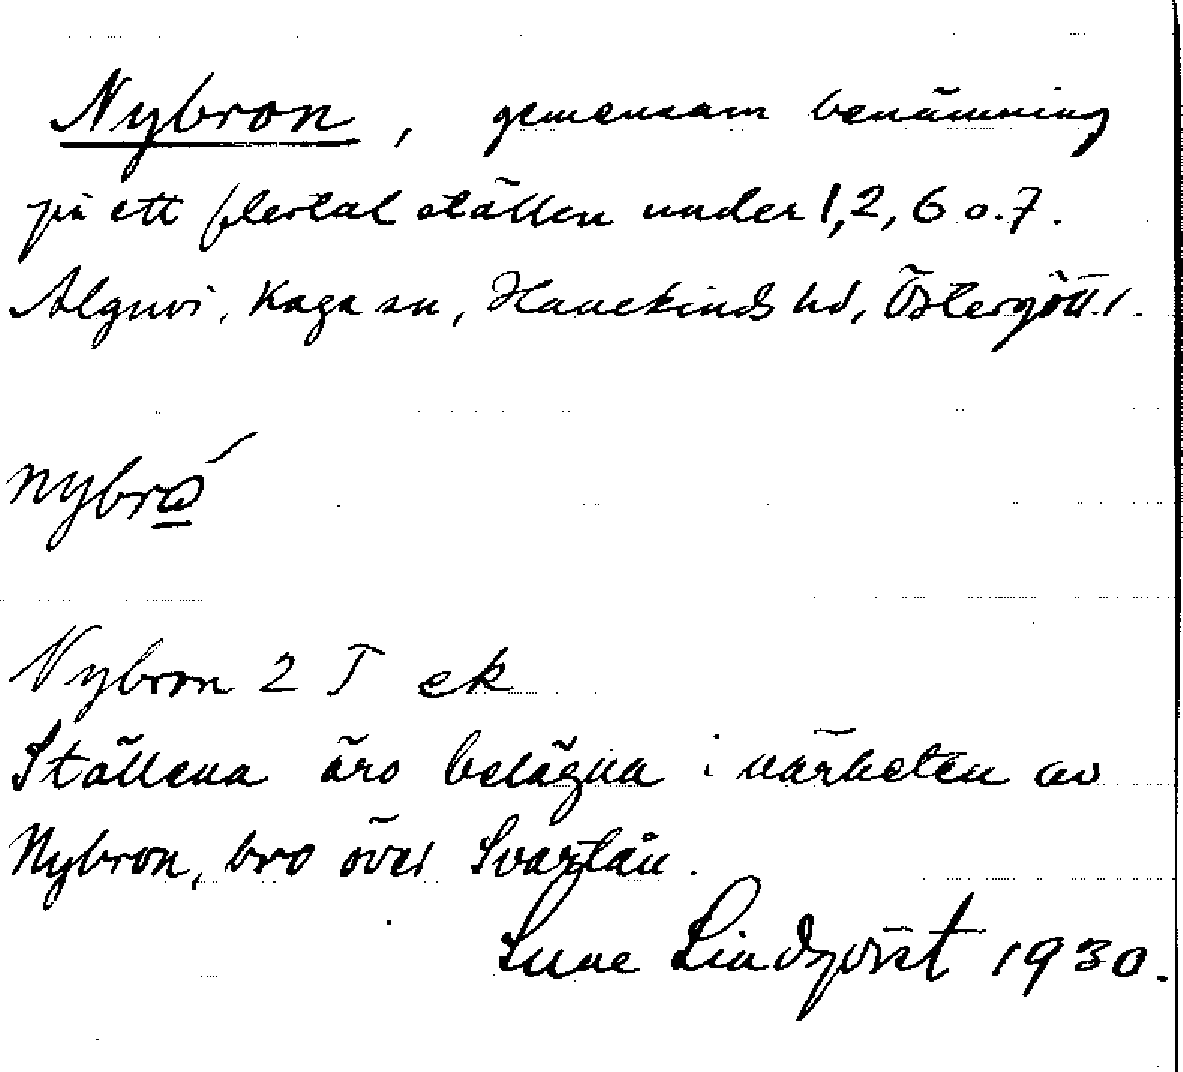 Nybron, gemensam benämning
på ett flertal ställen under 1, 2, 6 o. 7.
Alguvi, Kaga sn, Hanekinds hd, Östergötl.
nybró
Nybron 2 T ek
Ställena äro belägna i närheten av
Nybron, bro över Svartån.
Sune Lindqvist 1930.